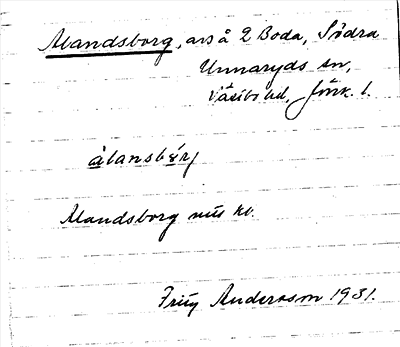 Alandsborg, avs å 2 Boda, Södra
Unnaryds sn,
Västbo hd, Jönk. l.
ålansbårj
Alandsborg mtl kb.
Fritz Andersson 1931.